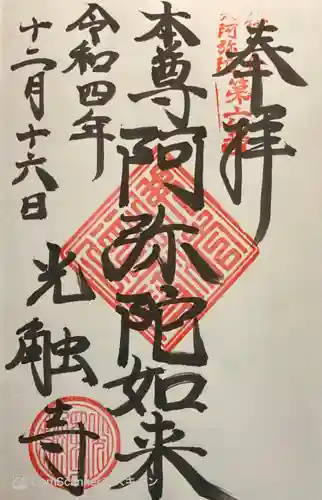 奉拝
第六番
本尊 阿弥陀如来
令和四年
十二月十六日
光触寺
CamScanner でスキャン